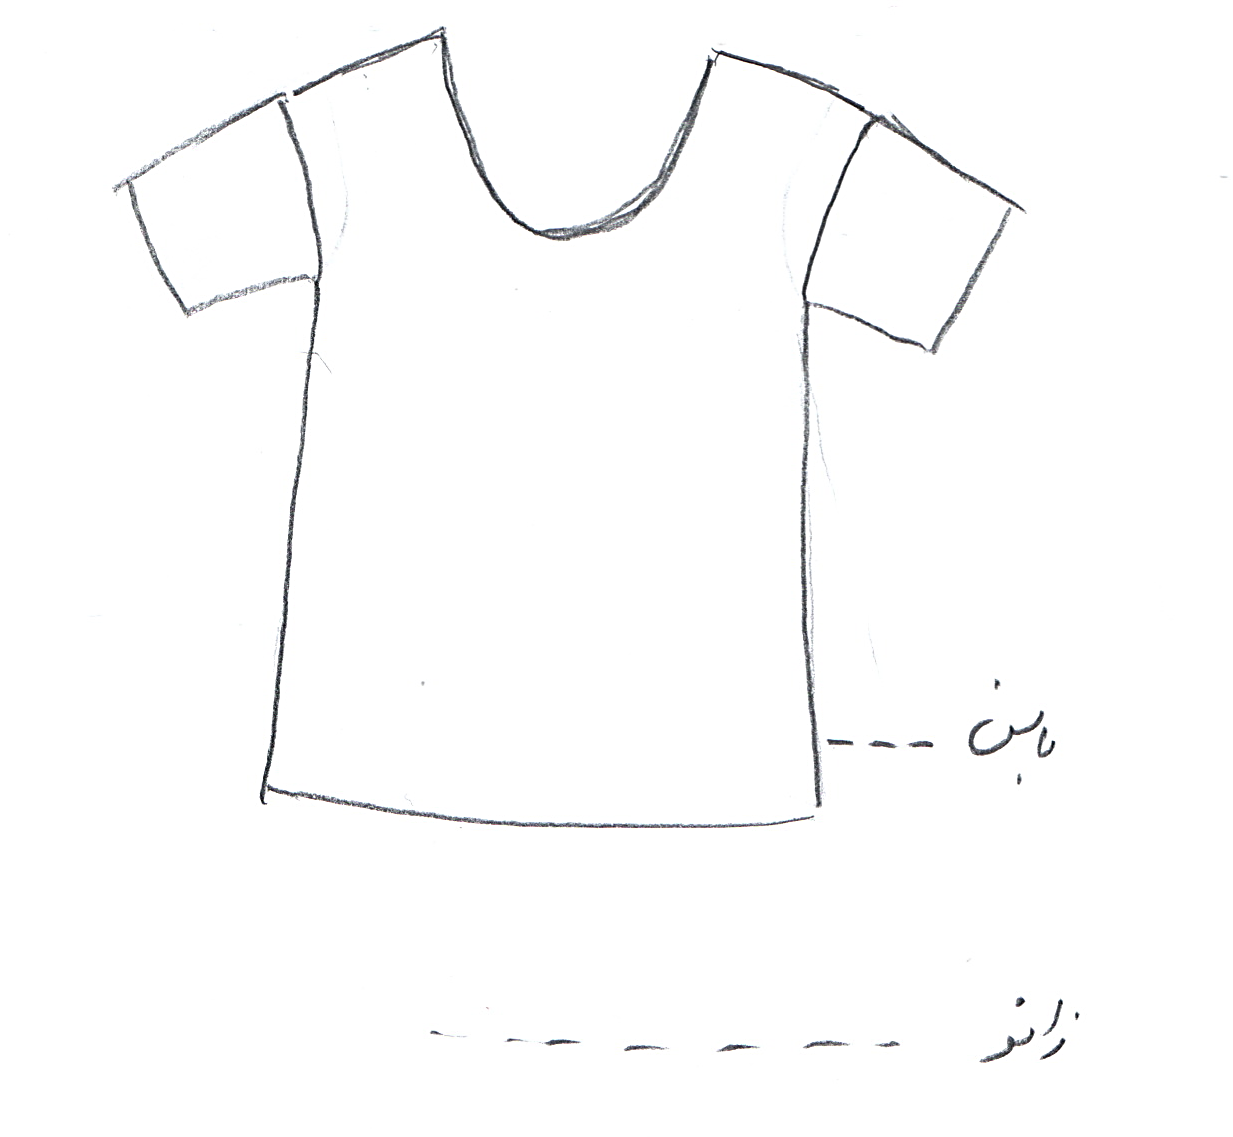 باسن
زانو